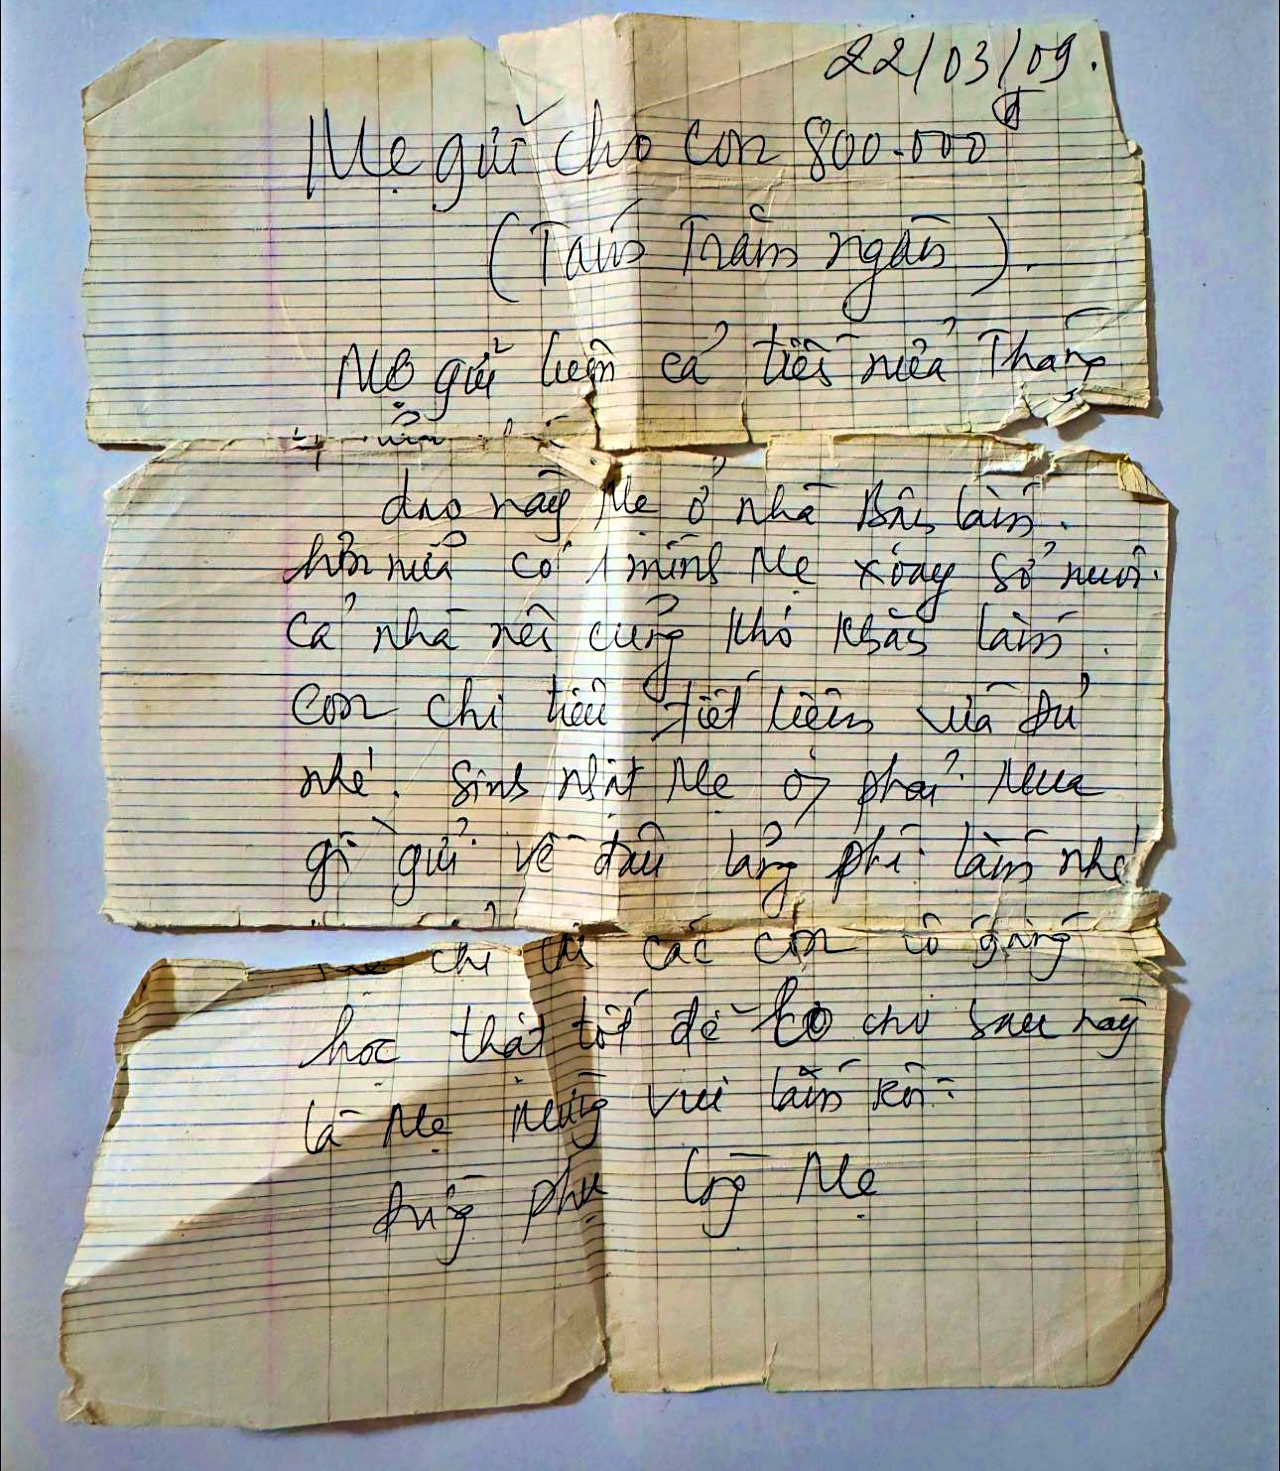 22/03/09.
Mẹ gửi cho con 800.000đ
(Tám Trăm ngàn).
Mẹ gửi luôn cả tiền nửa Tháng
4 nữa
dạo này Mẹ ở nhà Bận lắm.
hơn nữa có 1 mình Mẹ xoay sở nuôi
cả nhà nên cũng khó khăn lắm.
Con chi tiêu tiết kiệm vừa đủ
nhé. Sinh nhật Mẹ phải Mua
gì gửi về đâu lãng phí lắm nhé
Mẹ chỉ các con cố gắng
học thật tốt để cho sau này
là Mẹ Mừng vui lắm rồi.
đừng phụ lòng Mẹ